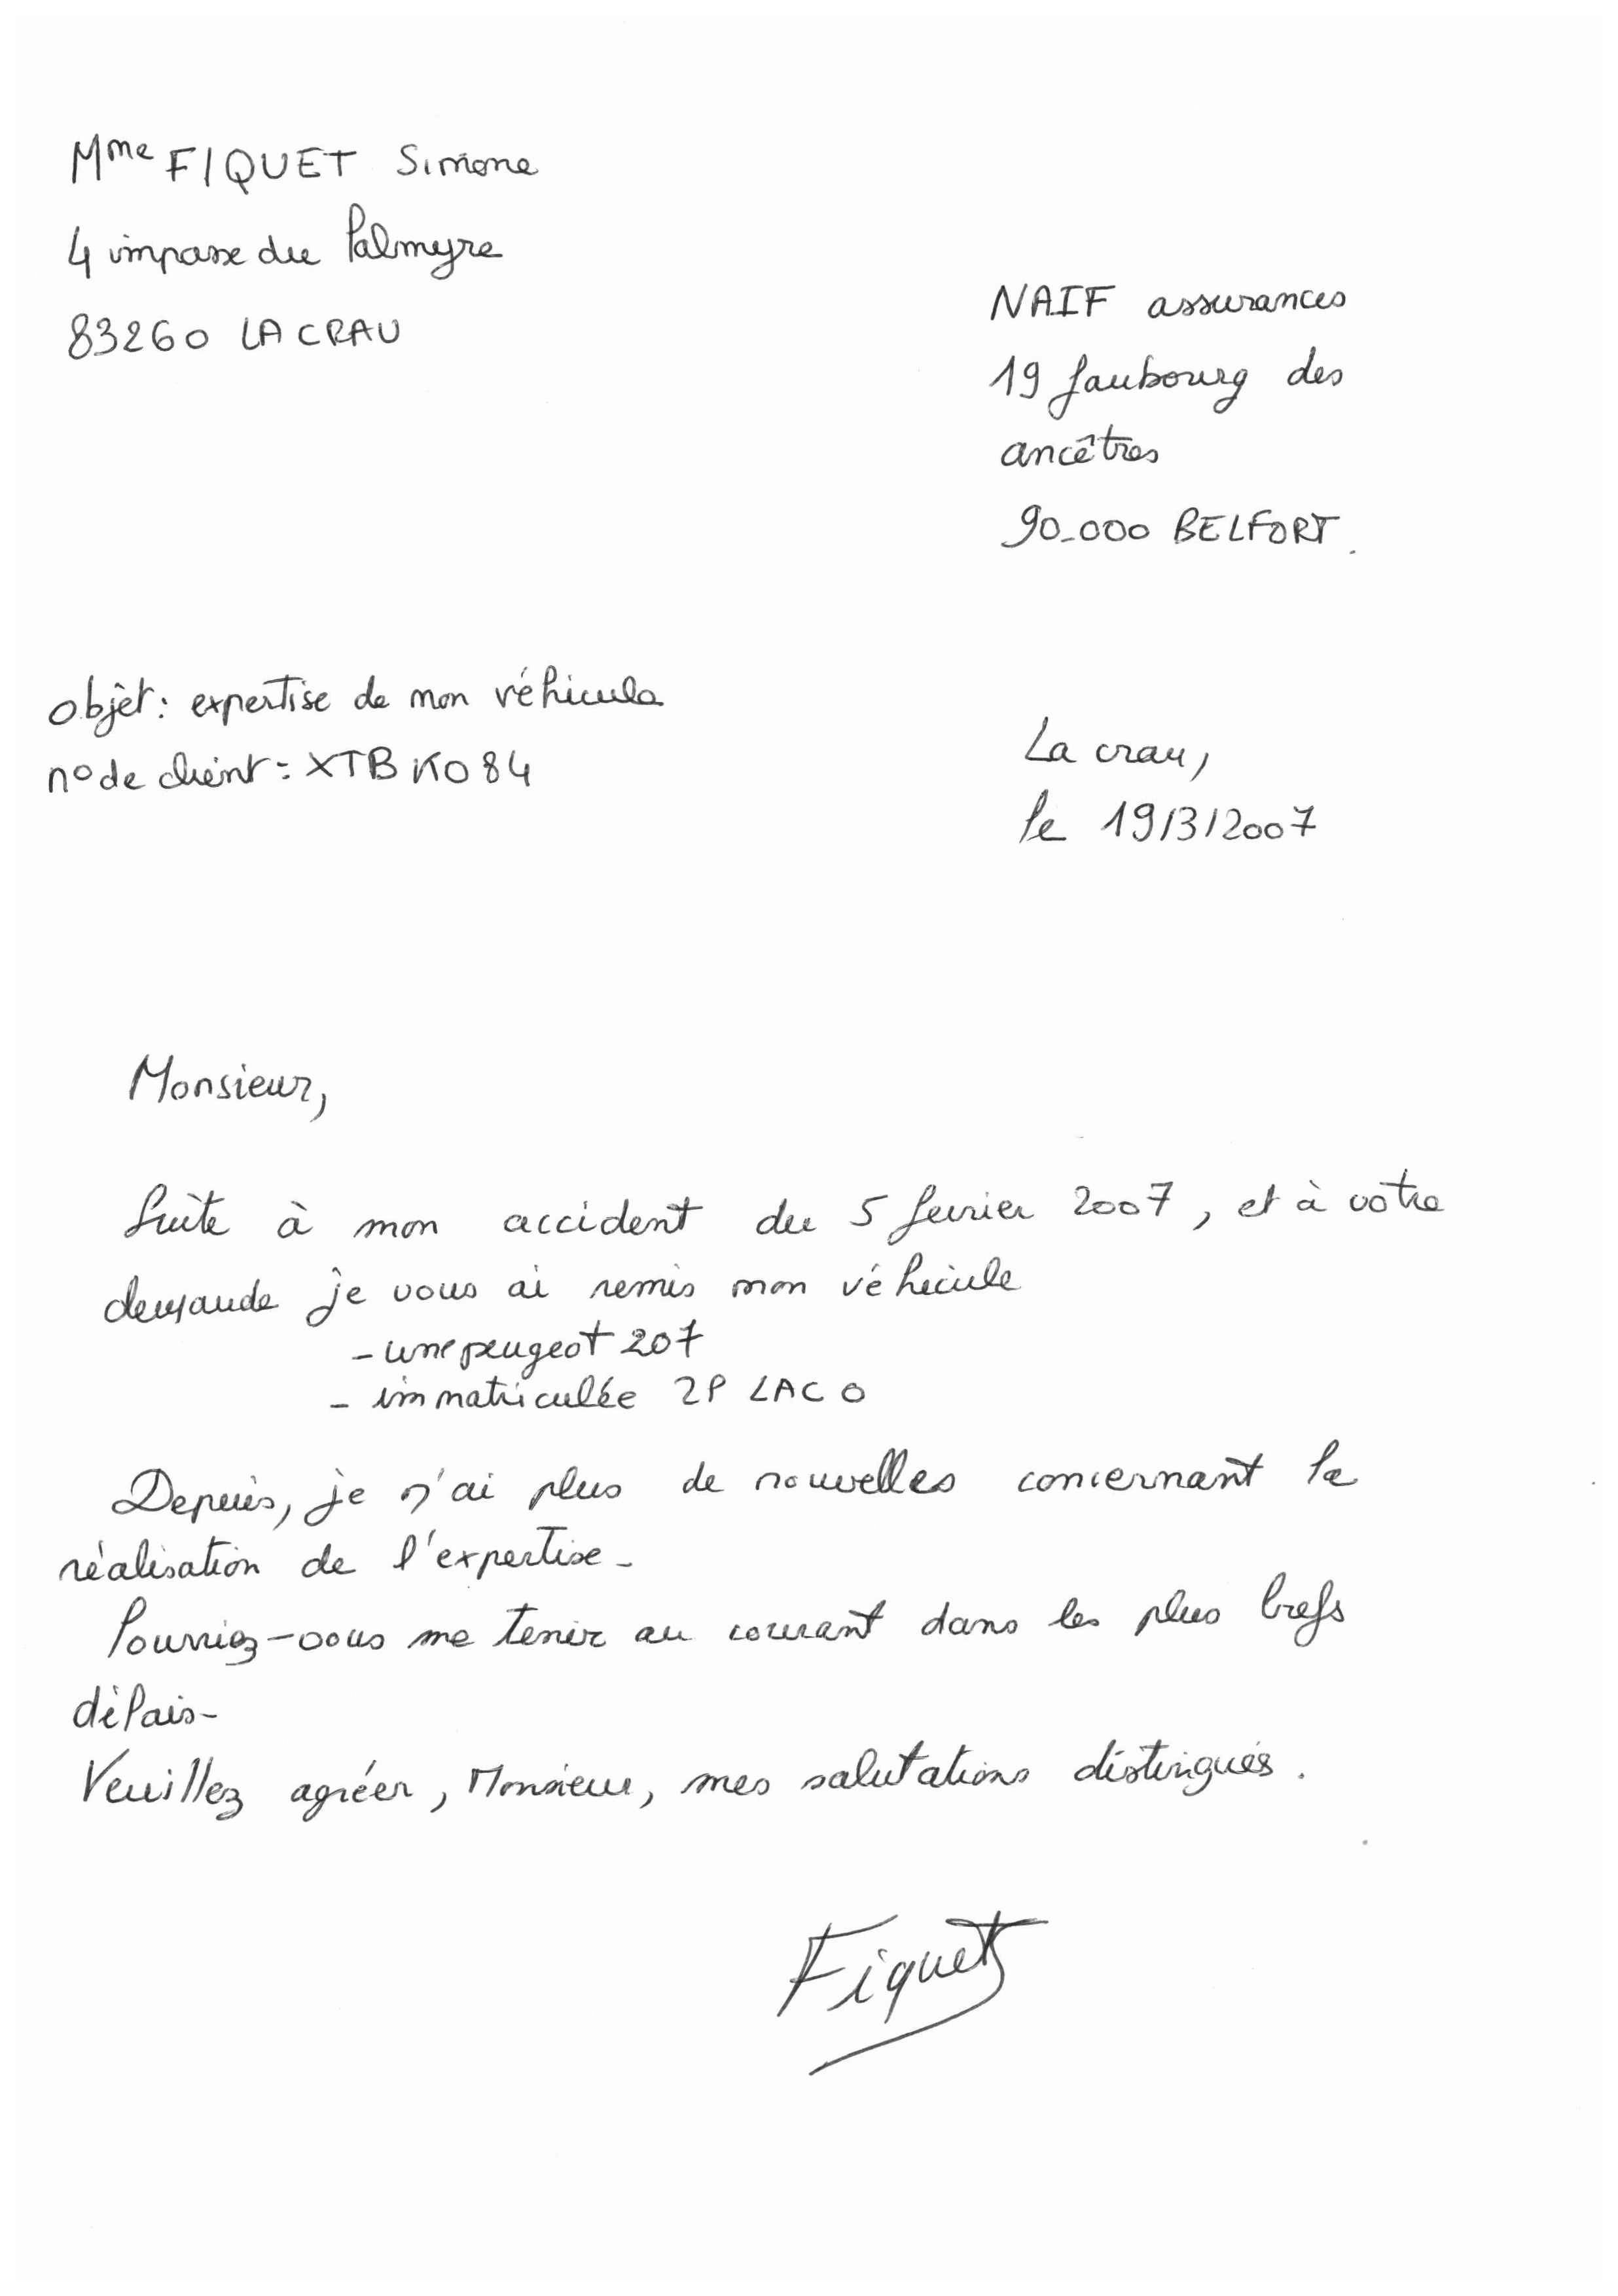 Mme FIQUET Simone
4 impasse du Palmyre
83260 LA CRAU
NAIF assurances
19 faubourg des
ancêtres
90-000 BELFORT.
objet: expertise de mon véhicule
n° de client: XTBK084
La crau,
le 19/3/2007
Monsieur,
Suite à mon accident du 5 fevrier 2007, et à votre
demande je vous ai remis mon véhicule
- une peugeot 207
- immatriculée 2P LAC 0
Depuis, je n'ai plus de nouvelles concernant la
réalisation de l'expertise-
Pourriez-vous me tenir au courant dans les plus brefs
délais-
Veuillez agréer, Monsieur, mes salutations distingués.
Fiquet